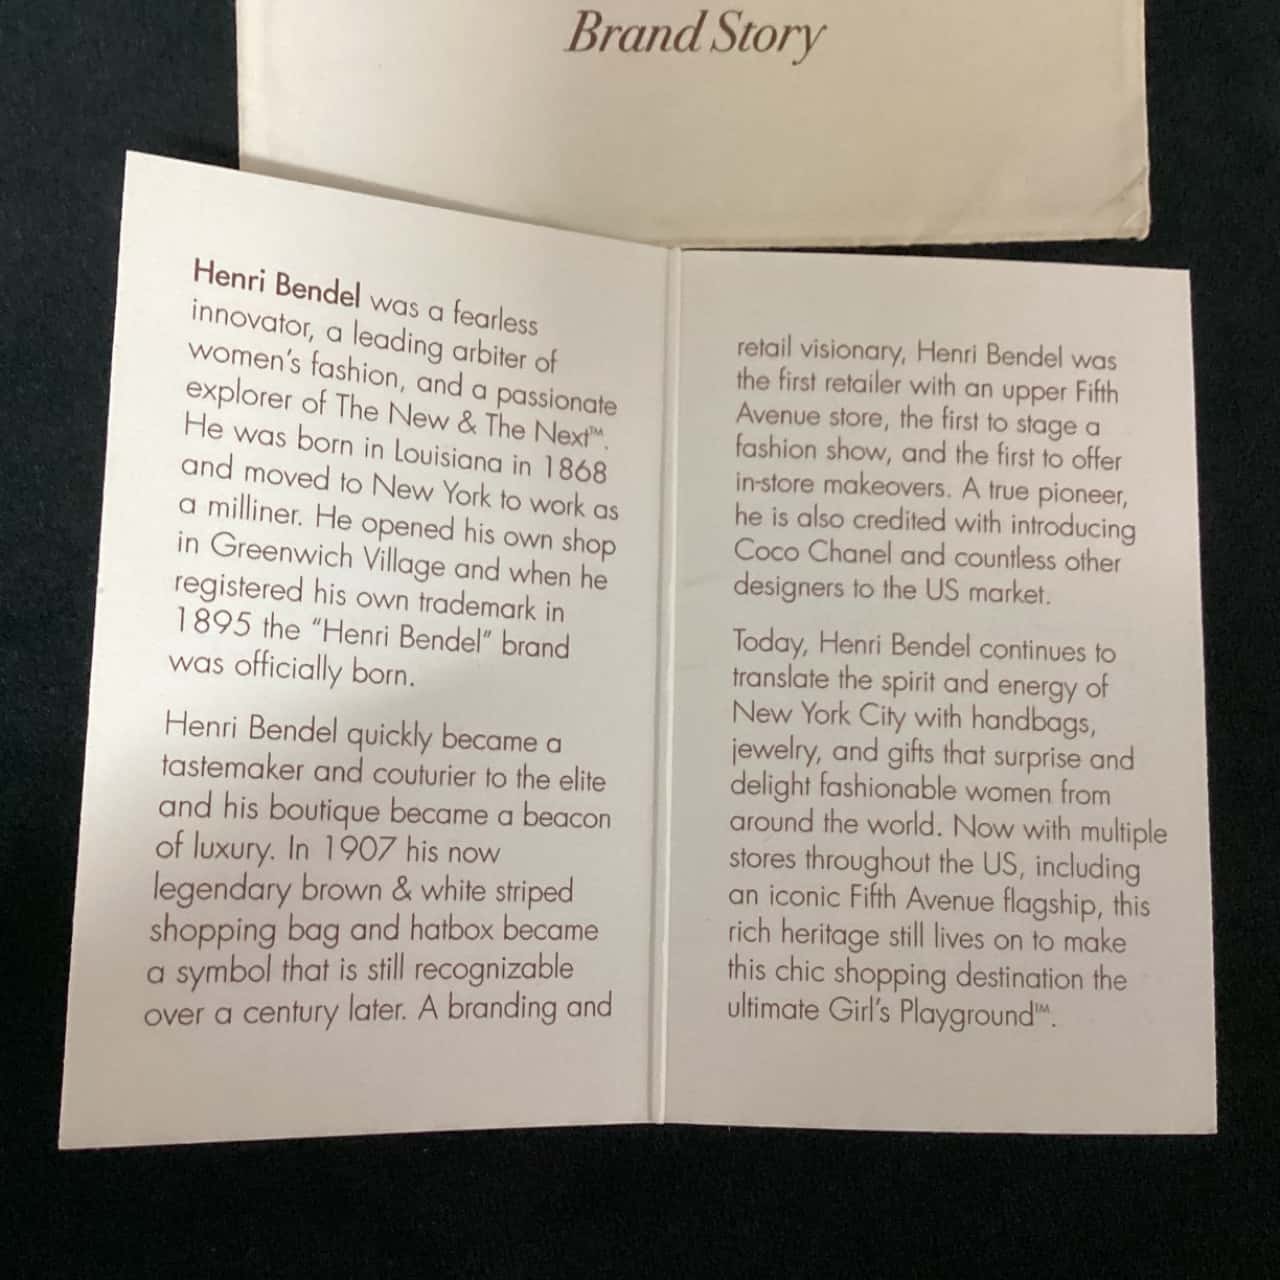 Brand Story
Henri Bendel was a fearless
innovator, a leading arbiter of
women's fashion, and a passionate
explorer of The New & The Next™.
He was born in Louisiana in 1868
and moved to New York to work as
a milliner. He opened his own shop
in Greenwich Village and when he
registered his own trademark in
1895 the "Henri Bendel" brand
was officially born.
Henri Bendel quickly became a
tastemaker and couturier to the elite
and his boutique became a beacon
of luxury. In 1907 his now
legendary brown & white striped
shopping bag and hatbox became
a symbol that is still recognizable
over a century later. A branding and
retail visionary, Henri Bendel was
the first retailer with an upper Fifth
Avenue store, the first to stage a
fashion show, and the first to offer
in-store makeovers. A true pioneer,
he is also credited with introducing
Coco Chanel and countless other
designers to the US market.
Today, Henri Bendel continues to
translate the spirit and energy of
New York City with handbags,
jewelry, and gifts that surprise and
delight fashionable women from
around the world. Now with multiple
stores throughout the US, including
an iconic Fifth Avenue flagship, this
rich heritage still lives on to make
this chic shopping destination the
ultimate Girl's Playground™.